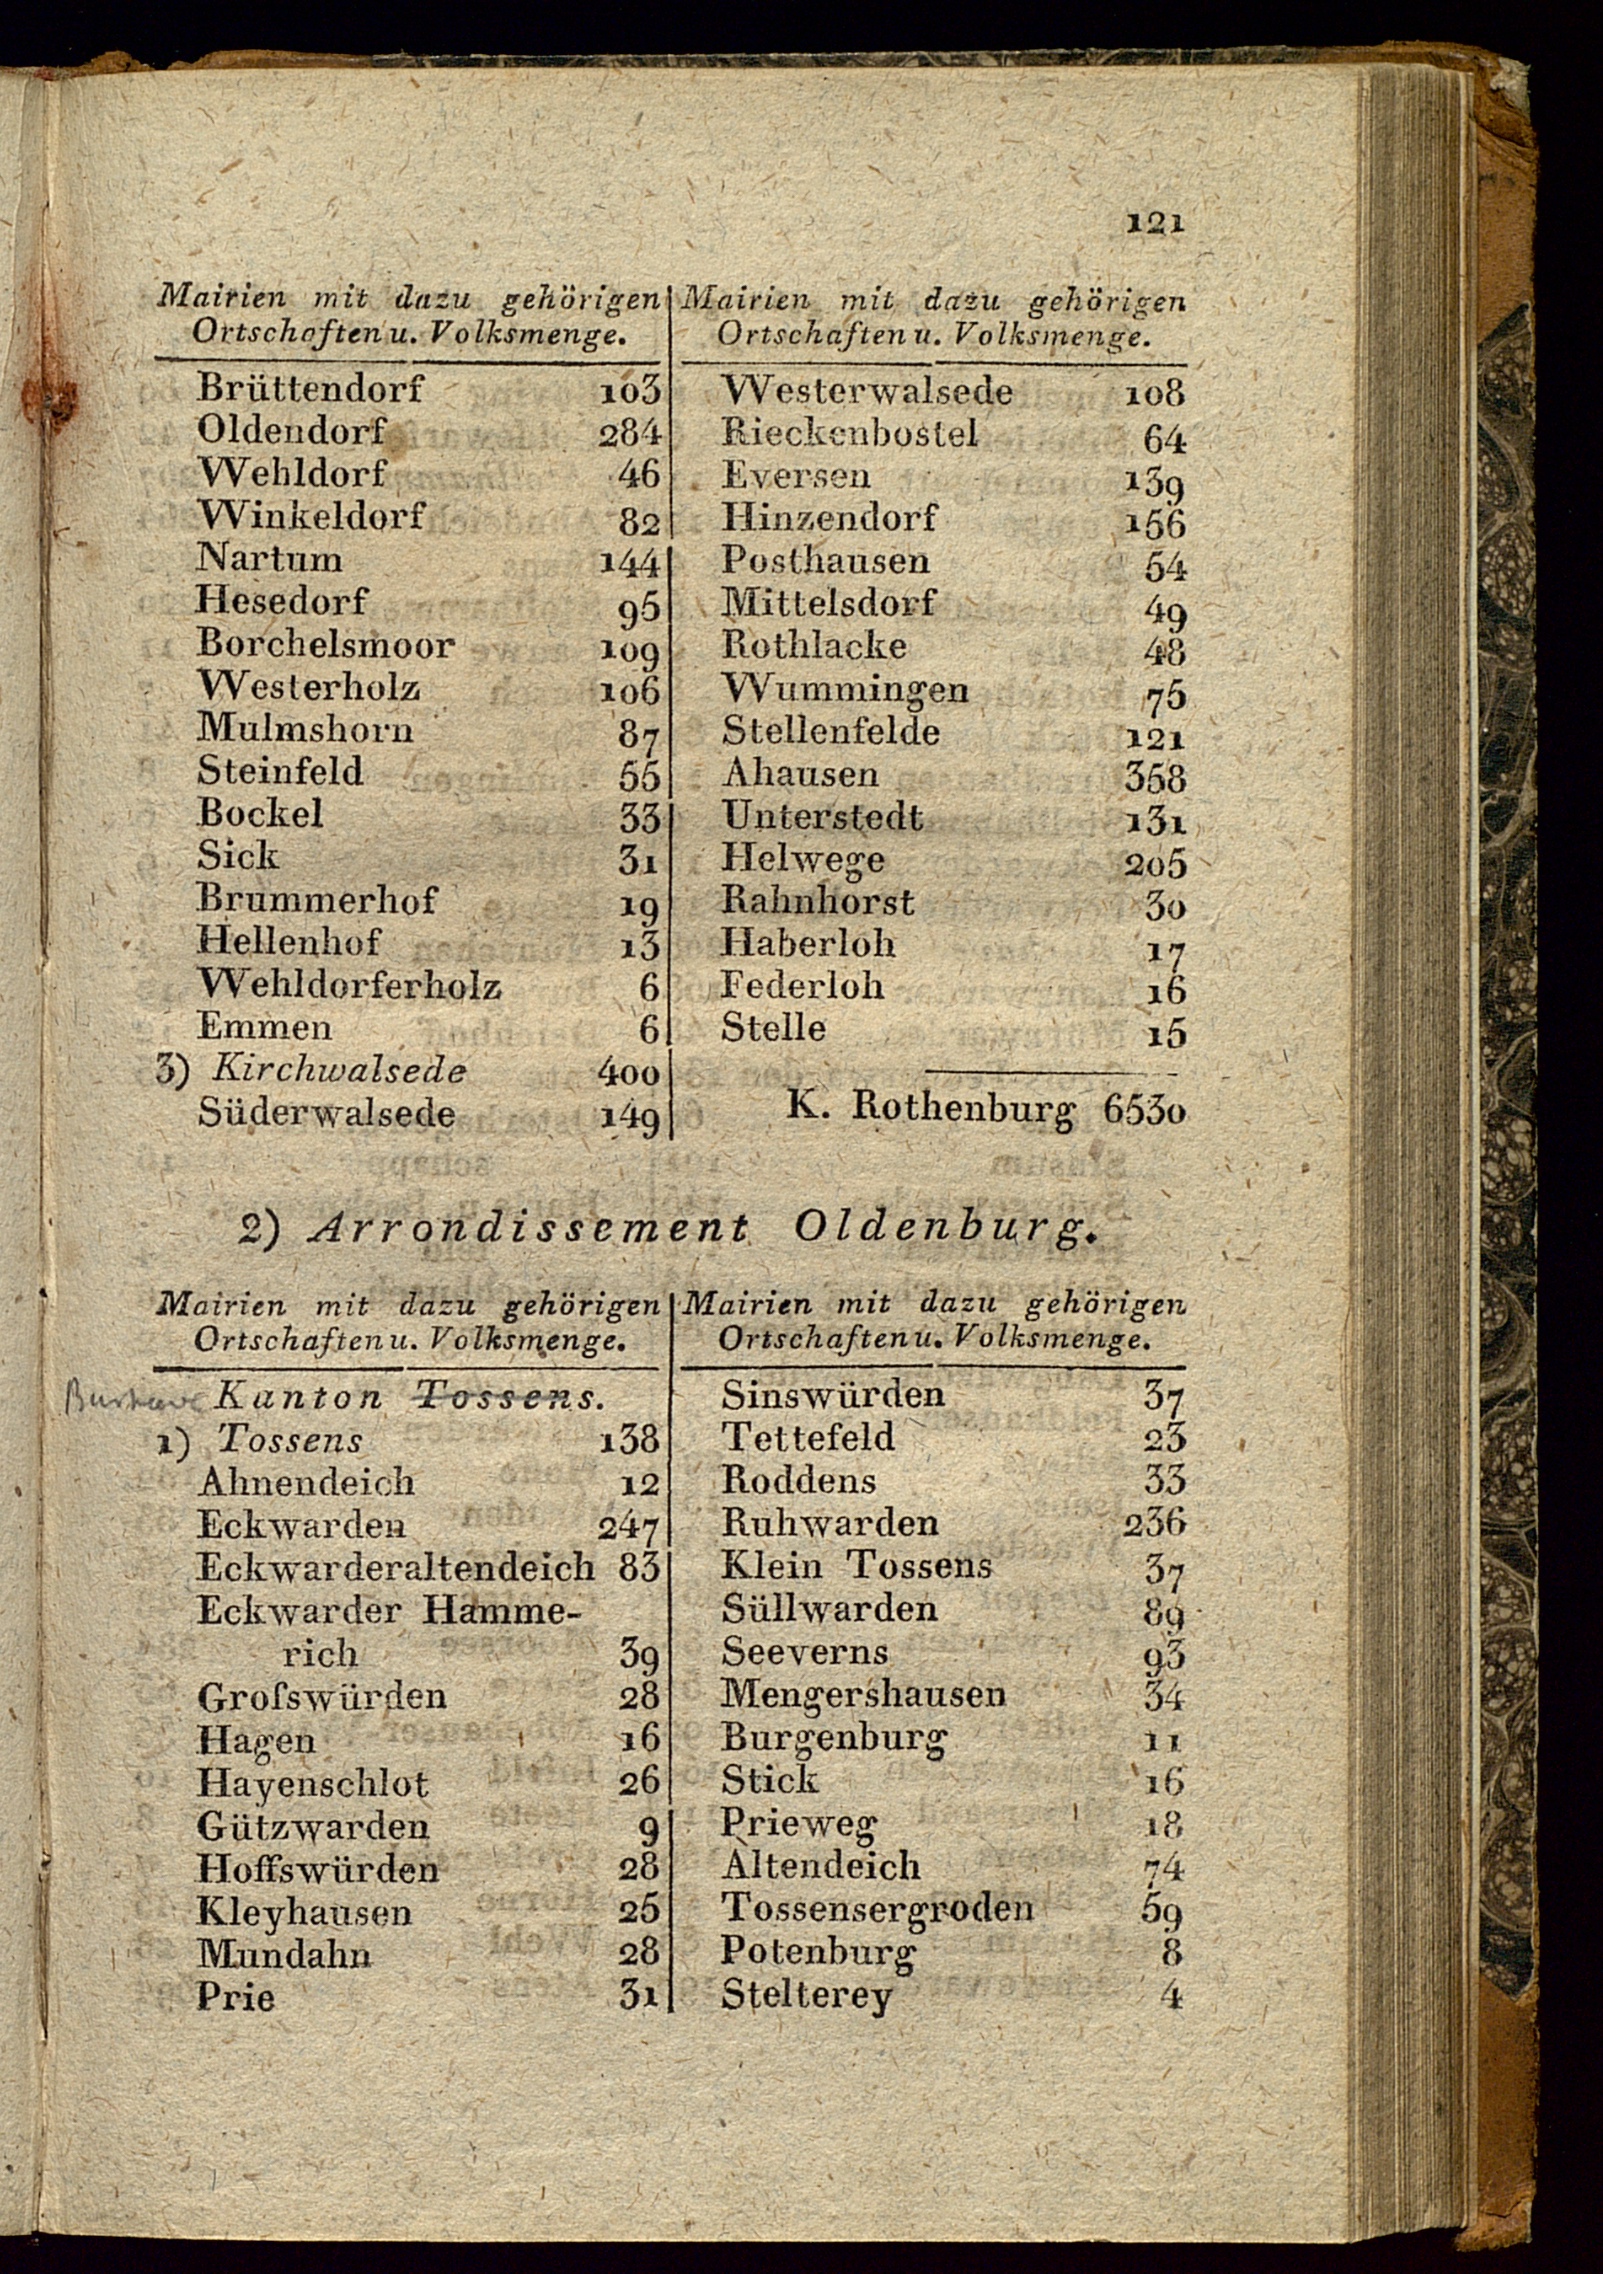 121
Mairien mit dazu gehörigen
Ortschaften u. Volksmenge.
Brüttendorf 103
Oldendorf 284
Wehldorf 46
Winkeldorf 82
Nartum 144
Hesedorf 95
Borchelsmoor 109
Westerholz 106
Mulmshorn 87
Steinfeld 55
Bockel 33
Sick 31
Brummerhof 19
Hellenhof 13
Wehldorferholz 6
Emmen 6
3) Kirchwalsede 400
Süderwalsede 149
Mairien mit dazu gehörigen
Ortschaften u. Volksmenge.
Westerwalsede 108
Rieckenbostel 64
Eversen 139
Hinzendorf 156
Posthausen 54
Mittelsdorf 49
Rothlacke 48
Wummingen 75
Stellenfelde 121
Ahausen 358
Unterstedt 131
Helwege 205
Rahnhorst 30
Haberloh 17
Federloh 16
Stelle 15
K. Rothenburg 6530
2) Arrondissement Oldenburg.
Mairien mit dazu gehörigen
Ortschaften u. Volksmenge.
Kanton Tossens.
1) Tossens 138
Ahnendeich 12
Eckwarden 247
Eckwarderaltendeich 83
Eckwarder Hamme-
rich 39
Groſswürden 28
Hagen 16
Hayenschlot 26
Gützwarden 9
Hoffswürden 28
Kleyhausen 25
Mundahn 28
Prie 31
Mairien mit dazu gehörigen
Ortschaften u. Volksmenge.
Sinswürden 37
Tettefeld 23
Roddens 33
Ruhwarden 236
Klein Tossens 37
Süllwarden 89
Seeverns 93
Mengershausen 34
Burgenburg 11
Stick 16
Prieweg 18
Altendeich 74
Tossensergroden 59
Potenburg 8
Stelterey 4